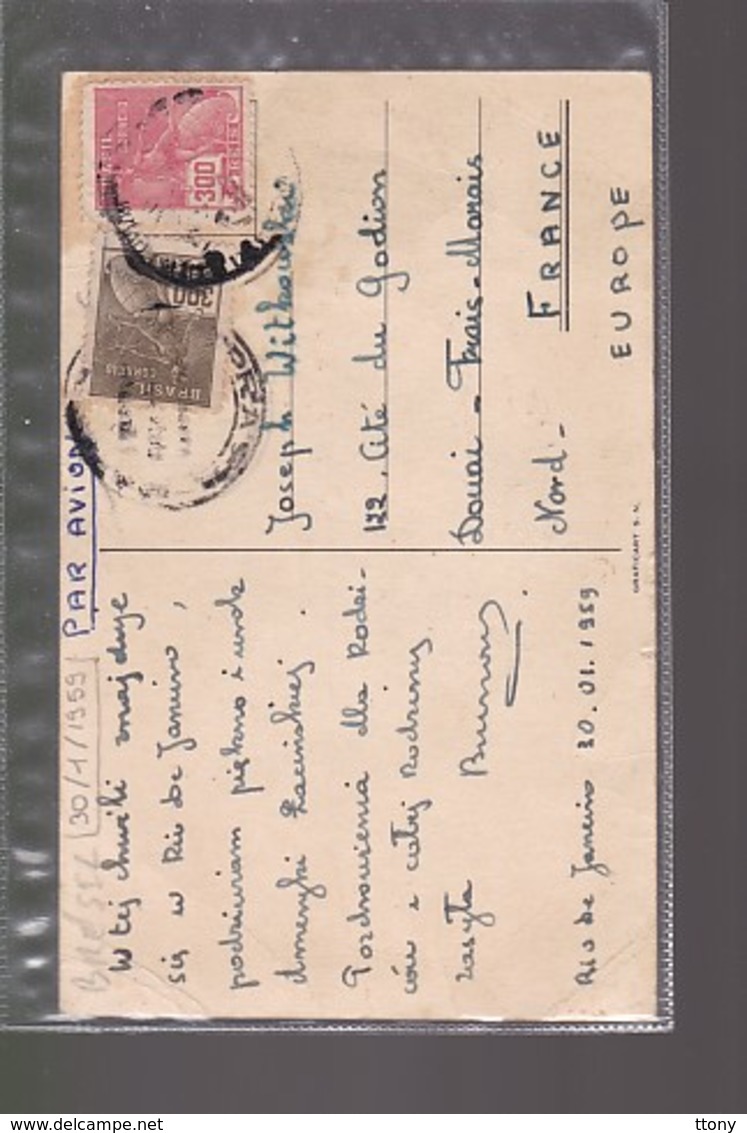 BRÉSIL 30/1/1959
PAR AVION
W tej chwili znajduje
się w Rio de Janeiro,
podziwiam piękno i urok
Ameryki Łacińskiej.
Pozdrowienia dla Rodzi-
ców i całej Rodziny
zasyła Brunon
Rio de Janeiro 30.01.1959
300
300
BRASIL
CORREIO
Joseph Witkowski
122. Cité du Godion
Douai - Frais-Marais
Nord - FRANCE
EUROPE
GRAFICART S. A.
delcampe.net
ttony